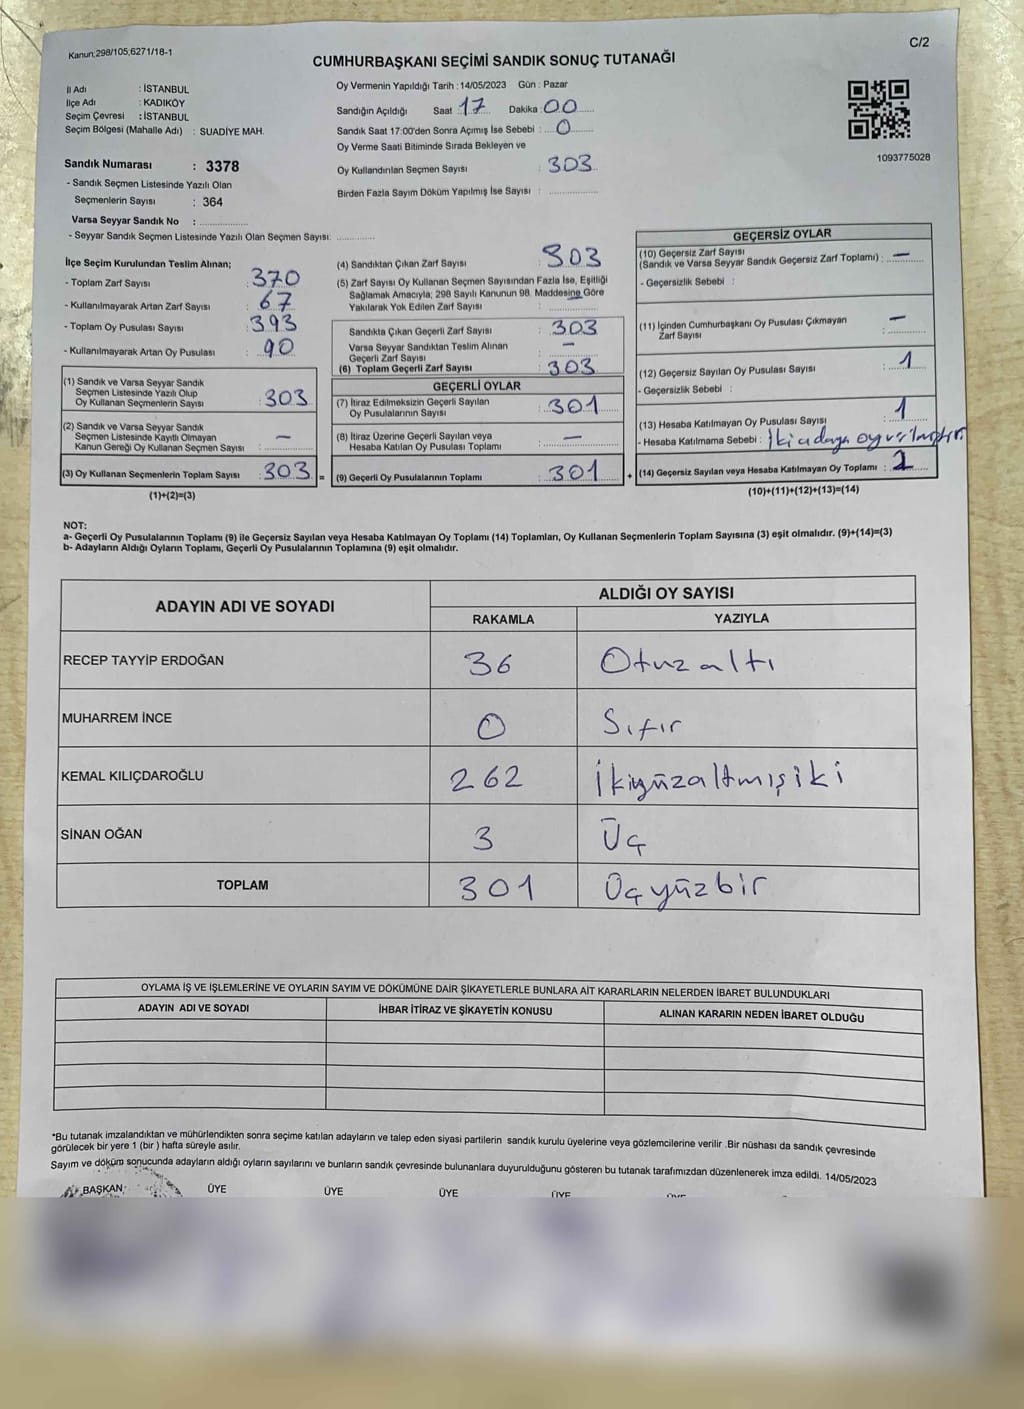 Kanun:298/105,6271/18-1
C/2
CUMHURBAŞKANI SEÇİMİ SANDIK SONUÇ TUTANAĞI
İl Adı : İSTANBUL
İlçe Adı : KADIKÖY
Seçim Çevresi : İSTANBUL
Seçim Bölgesi (Mahalle Adı) : SUADİYE MAH.
Sandık Numarası : 3378
- Sandık Seçmen Listesinde Yazılı Olan
Seçmenlerin Sayısı : 364
Varsa Seyyar Sandık No : ..............
- Seyyar Sandık Seçmen Listesinde Yazılı Olan Seçmen Sayısı: ............
Oy Vermenin Yapıldığı Tarih : 14/05/2023 Gün : Pazar
Sandığın Açıldığı Saat 17 Dakika 00
Sandık Saat 17:00'den Sonra Açımış İse Sebebi : 0
Oy Verme Saati Bitiminde Sırada Bekleyen ve
Oy Kullandırılan Seçmen Sayısı : 303
Birden Fazla Sayım Döküm Yapılmış İse Sayısı : ..............
1093775028
İlçe Seçim Kurulundan Teslim Alınan;
- Toplam Zarf Sayısı : 370
- Kullanılmayarak Artan Zarf Sayısı : 67
- Toplam Oy Pusulası Sayısı : 393
- Kullanılmayarak Artan Oy Pusulası : 90
(1) Sandık ve Varsa Seyyar Sandık
Seçmen Listesinde Yazılı Olup
Oy Kullanan Seçmenlerin Sayısı : 303
(2) Sandık ve Varsa Seyyar Sandık
Seçmen Listesinde Kayıtlı Olmayan
Kanun Gereği Oy Kullanan Seçmen Sayısı : —
(3) Oy Kullanan Seçmenlerin Toplam Sayısı : 303 =
(1)+(2)=(3)
(4) Sandıktan Çıkan Zarf Sayısı : 303
(5) Zarf Sayısı Oy Kullanan Seçmen Sayısından Fazla İse, Eşitliği
Sağlamak Amacıyla; 298 Sayılı Kanunun 98. Maddesine Göre
Yakılarak Yok Edilen Zarf Sayısı : —
Sandıkta Çıkan Geçerli Zarf Sayısı : 303
Varsa Seyyar Sandıktan Teslim Alınan
Geçerli Zarf Sayısı : —
(6) Toplam Geçerli Zarf Sayısı : 303
GEÇERLİ OYLAR
(7) İtiraz Edilmeksizin Geçerli Sayılan
Oy Pusulalarının Sayısı : 301
(8) İtiraz Üzerine Geçerli Sayılan veya
Hesaba Katılan Oy Pusulası Toplamı : —
(9) Geçerli Oy Pusulalarının Toplamı : 301 +
GEÇERSİZ OYLAR
(10) Geçersiz Zarf Sayısı
(Sandık ve Varsa Seyyar Sandık Geçersiz Zarf Toplamı) : —
- Geçersizlik Sebebi :
(11) İçinden Cumhurbaşkanı Oy Pusulası Çıkmayan
Zarf Sayısı : —
(12) Geçersiz Sayılan Oy Pusulası Sayısı : 1
- Geçersizlik Sebebi :
(13) Hesaba Katılmayan Oy Pusulası Sayısı : 1
- Hesaba Katılmama Sebebi : İki adaya oy verilmiştir.
(14) Geçersiz Sayılan veya Hesaba Katılmayan Oy Toplamı : 2
(10)+(11)+(12)+(13)=(14)
NOT:
a- Geçerli Oy Pusulalarının Toplamı (9) ile Geçersiz Sayılan veya Hesaba Katılmayan Oy Toplamı (14) Toplamları, Oy Kullanan Seçmenlerin Toplam Sayısına (3) eşit olmalıdır. (9)+(14)=(3)
b- Adayların Aldığı Oyların Toplamı, Geçerli Oy Pusulalarının Toplamına (9) eşit olmalıdır.
ADAYIN ADI VE SOYADI ALDIĞI OY SAYISI
RAKAMLA YAZIYLA
RECEP TAYYİP ERDOĞAN 36 Otuzaltı
MUHARREM İNCE 0 Sıfır
KEMAL KILIÇDAROĞLU 262 İkiyüzaltmışiki
SİNAN OĞAN 3 Üç
TOPLAM 301 Üçyüzbir
OYLAMA İŞ VE İŞLEMLERİNE VE OYLARIN SAYIM VE DÖKÜMÜNE DAİR ŞİKAYETLERLE BUNLARA AİT KARARLARIN NELERDEN İBARET BULUNDUKLARI
ADAYIN ADI VE SOYADI İHBAR İTİRAZ VE ŞİKAYETİN KONUSU ALINAN KARARIN NEDEN İBARET OLDUĞU
*Bu tutanak imzalandıktan ve mühürlendikten sonra seçime katılan adayların ve talep eden siyasi partilerin sandık kurulu üyelerine veya gözlemcilerine verilir .Bir nüshası da sandık çevresinde
görülecek bir yere 1 (bir ) hafta süreyle asılır.
Sayım ve döküm sonucunda adayların aldığı oyların sayılarını ve bunların sandık çevresinde bulunanlara duyurulduğunu gösteren bu tutanak tarafımızdan düzenlenerek imza edildi. 14/05/2023
BAŞKAN ÜYE ÜYE ÜYE ÜYE ÜYE